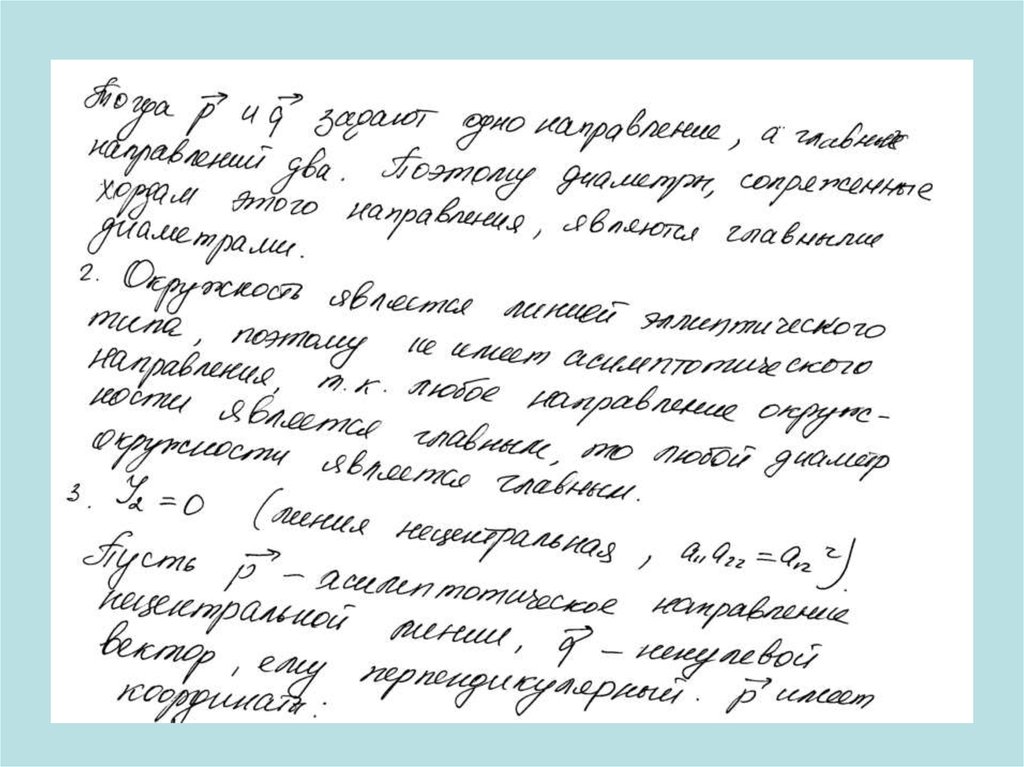 Тогда p⃗ и q⃗ задают одно направление, а главных
направлений два. Поэтому диаметры, сопряженные
хордам этого направления, являются главными
диаметрами.
2. Окружность является линией эллиптического
типа, поэтому не имеет асимптотического
направления, т.к. любое направление окруж-
ности является главным, то любой диаметр
окружности является главным.
3. I₂ = 0 (линия нецентральная, a₁₁a₂₂ = a₁₂²).
Пусть p⃗ – асимптотическое направление
нецентральной линии, q⃗ – ненулевой
вектор, ему перпендикулярный. p⃗ имеет
координаты: